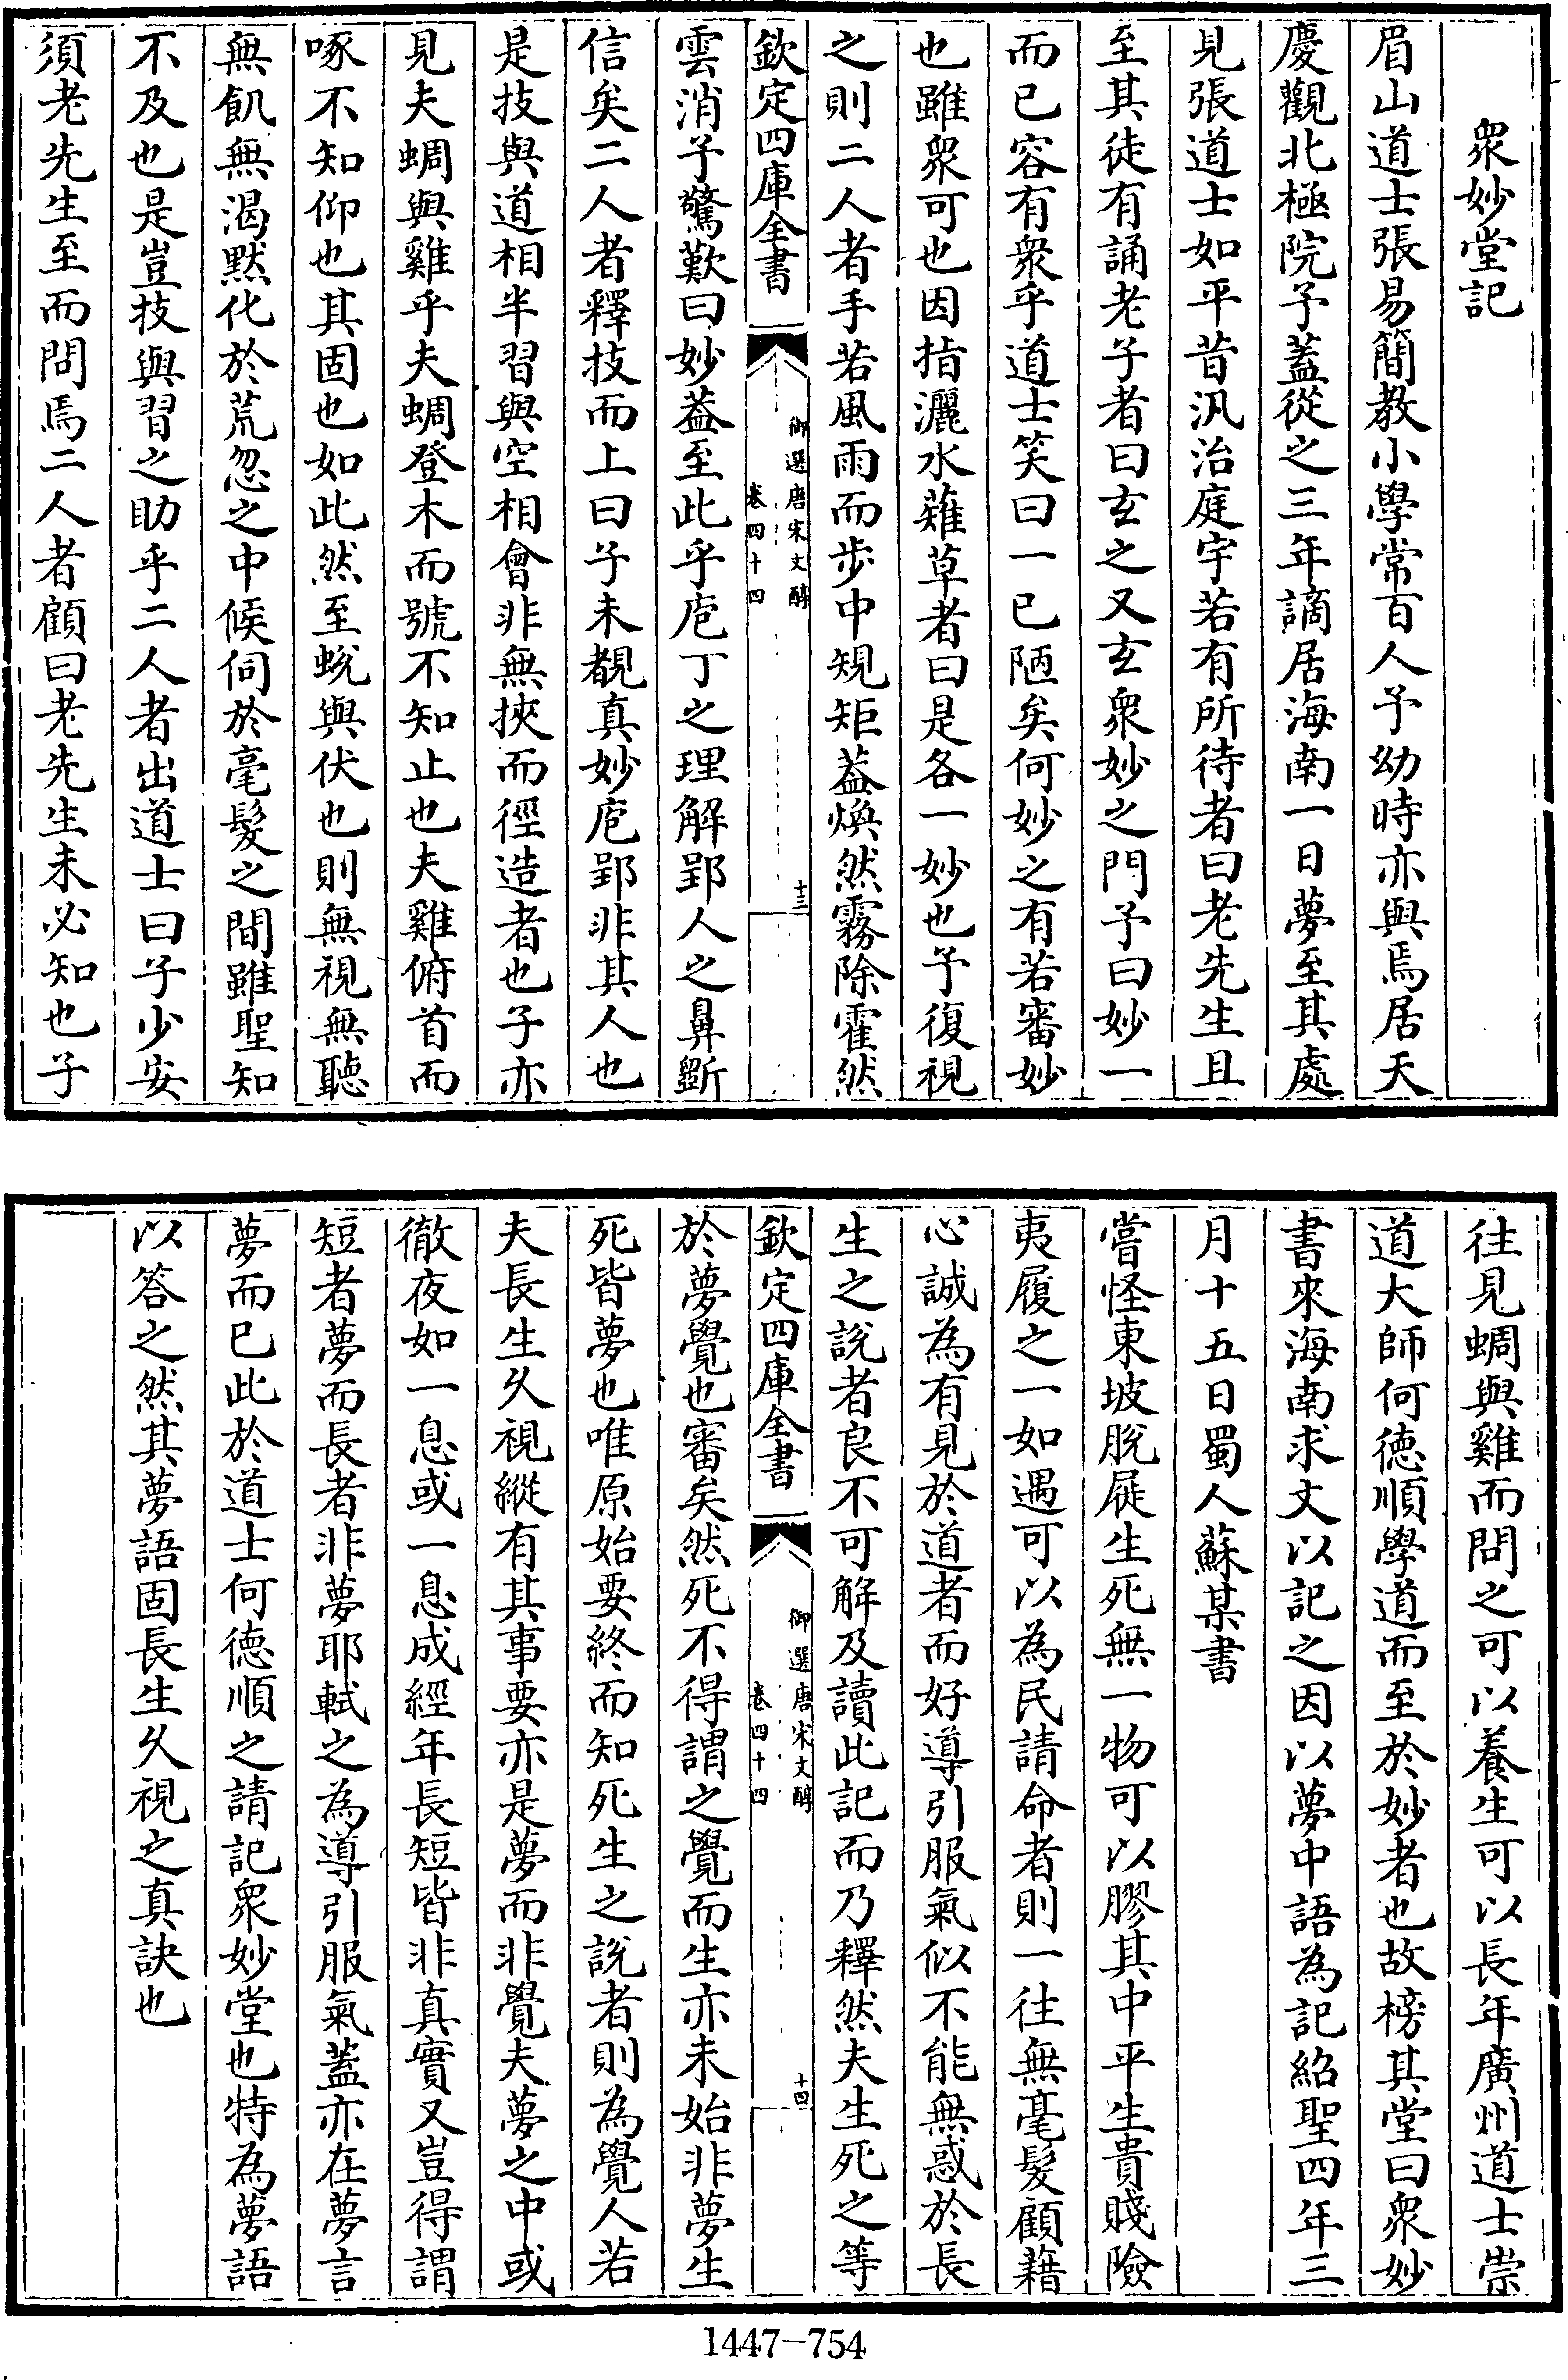 衆妙堂記
眉山道士張易簡教小學常百人予幼時亦與焉居天
慶觀北極院予蓋從之三年謫居海南一日夢至其處
見張道士如平昔汎治庭宇若有所待者曰老先生且
至其徒有誦老子者曰玄之又玄衆妙之門予曰妙一
而已容有衆乎道士笑曰一已陋矣何妙之有若審妙
也雖衆可也因指灑水薙草者曰是各一妙也予復視
之則二人者手若風雨而步中規矩蓋煥然霧除霍然
欽定四庫全書
御選唐宋文醇
卷四十四
十三
雲消予驚歎曰妙葢至此乎庖丁之理解郢人之鼻斷
信矣二人者釋技而上曰子未覩真妙庖郢非其人也
是技與道相半習與空相會非無挾而徑造者也子亦
見夫蜩與雞乎夫蜩登木而號不知止也夫雞俯首而
啄不知仰也其固也如此然至蛻與伏也則無視無聽
無飢無渴默化於荒忽之中候伺於毫髮之間雖聖知
不及也是豈技與習之助乎二人者出道士曰子少安
須老先生至而問焉二人者顧曰老先生未必知也子
往見蜩與雞而問之可以養生可以長年廣州道士崇
道大師何德順學道而至於妙者也故榜其堂曰衆妙
書來海南求文以記之因以夢中語為記紹聖四年三
月十五日蜀人蘇某書
嘗怪東坡脫屣生死無一物可以膠其中平生貴賤險
夷履之一如遇可以為民請命者則一往無毫髮顧藉
心誠為有見於道者而好導引服氣似不能無惑於長
生之說者良不可解及讀此記而乃釋然夫生死之等
欽定四庫全書
御選唐宋文醇
卷四十四
十四
於夢覺也審矣然死不得謂之覺而生亦未始非夢生
死皆夢也唯原始要終而知死生之說者則為覺人若
夫長生久視縱有其事要亦是夢而非覺夫夢之中或
徹夜如一息或一息成經年長短皆非真實又豈得謂
短者夢而長者非夢耶軾之為導引服氣蓋亦在夢言
夢而已此於道士何德順之請記衆妙堂也特為夢語
以答之然其夢語固長生久視之真訣也
1447-754